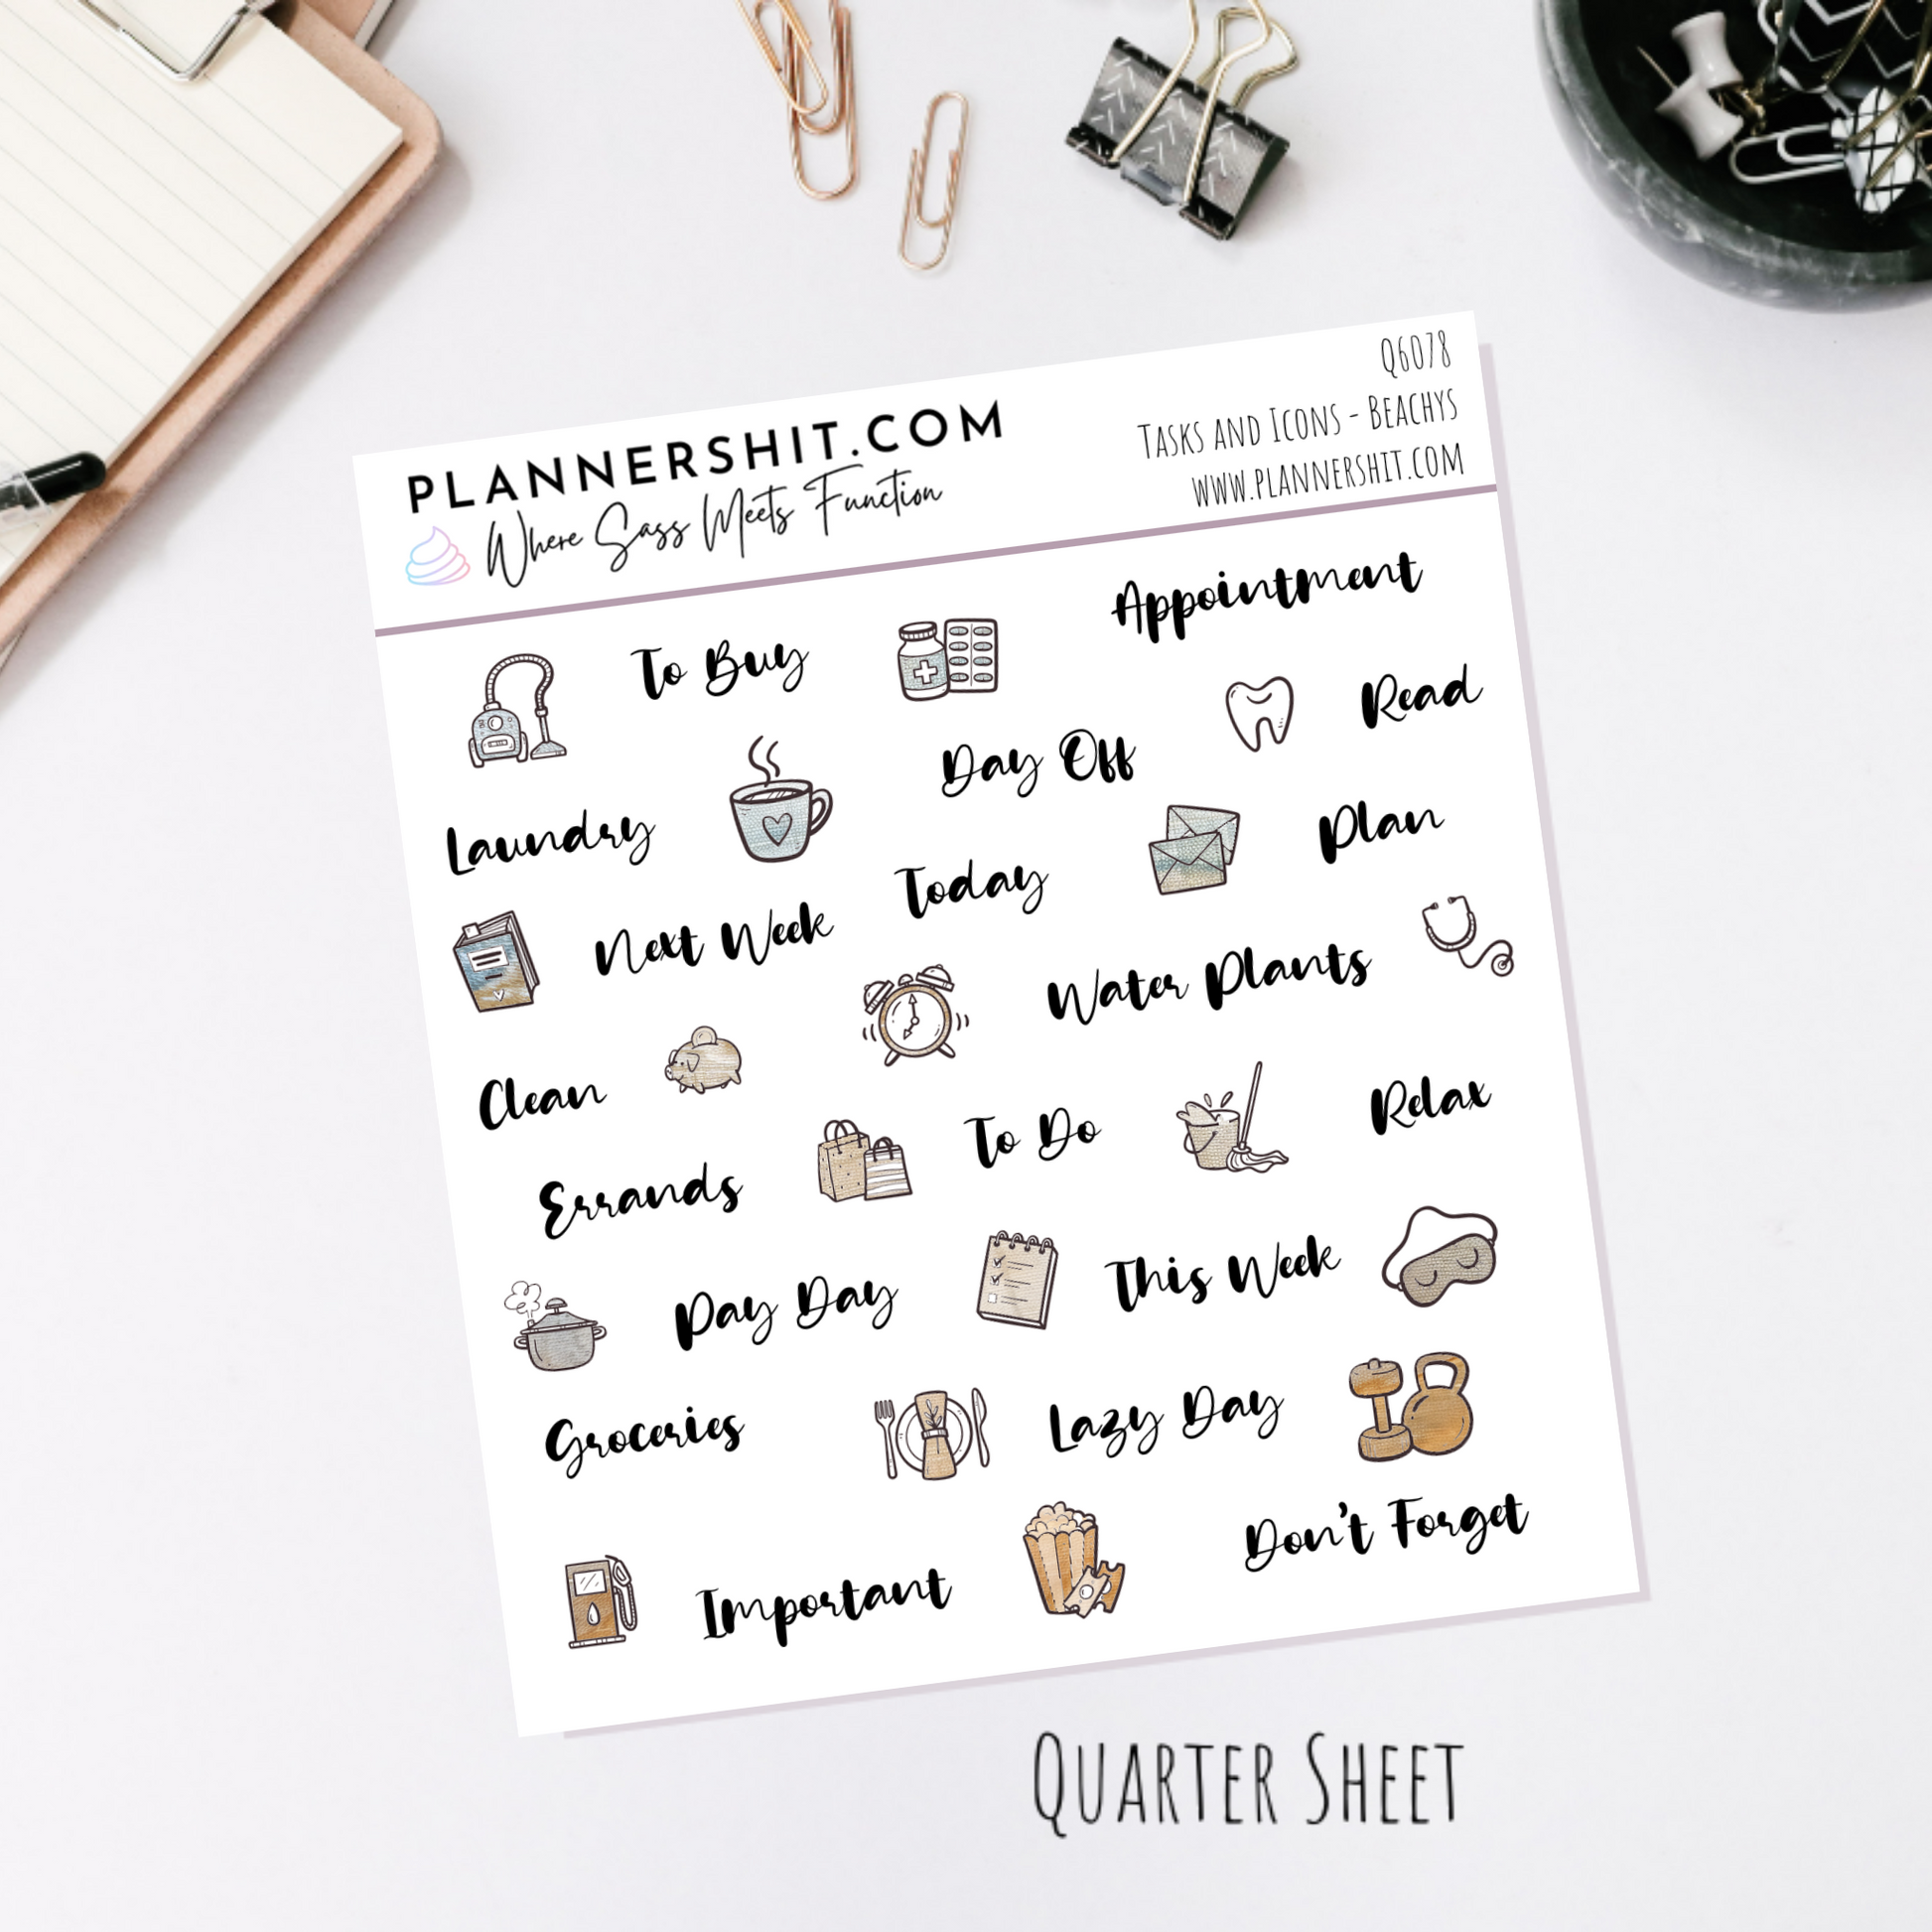 PLANNERSHIT.COM
Where Sass Meets Function
Q6078
TASKS AND ICONS - BEACHYS
WWW.PLANNERSHIT.COM
To Buy
Appointment
Read
Day Off
Laundry
Plan
Today
Next Week
Water Plants
Clean
Relax
To Do
Errands
This Week
Pay Day
Lazy Day
Groceries
Don't Forget
Important
QUARTER SHEET